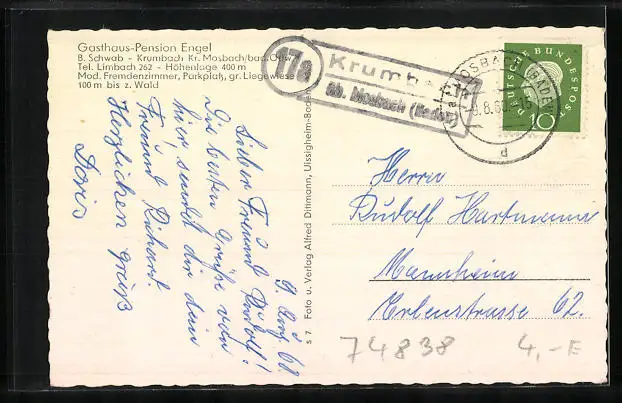 Gasthaus-Pension Engel
B. Schwab - Krumbach Kr. Mosbach/bad. Odw.
Tel. Limbach 262 - Höhenlage 400 m
Mod. Fremdenzimmer, Parkplatz, gr. Liegewiese
100 m bis z. Wald
17a
Krumbach
üb. Mosbach (Baden)
MOSBACH (BADEN)
d
DEUTSCHE BUNDESPOST
10
9. Aug. 60
Lieber Freund Rudolf!
Die besten Grüße von
hier, sendet dir dein
Freund Richart.
Herzlichen Gruß
Doris
S 7 Foto u. Verlag Alfred Dittmann, Uissigheim-Baden
Herrn
Rudolf Hartmann
Mannheim
Erlenstrasse 62.
74838
4,-E